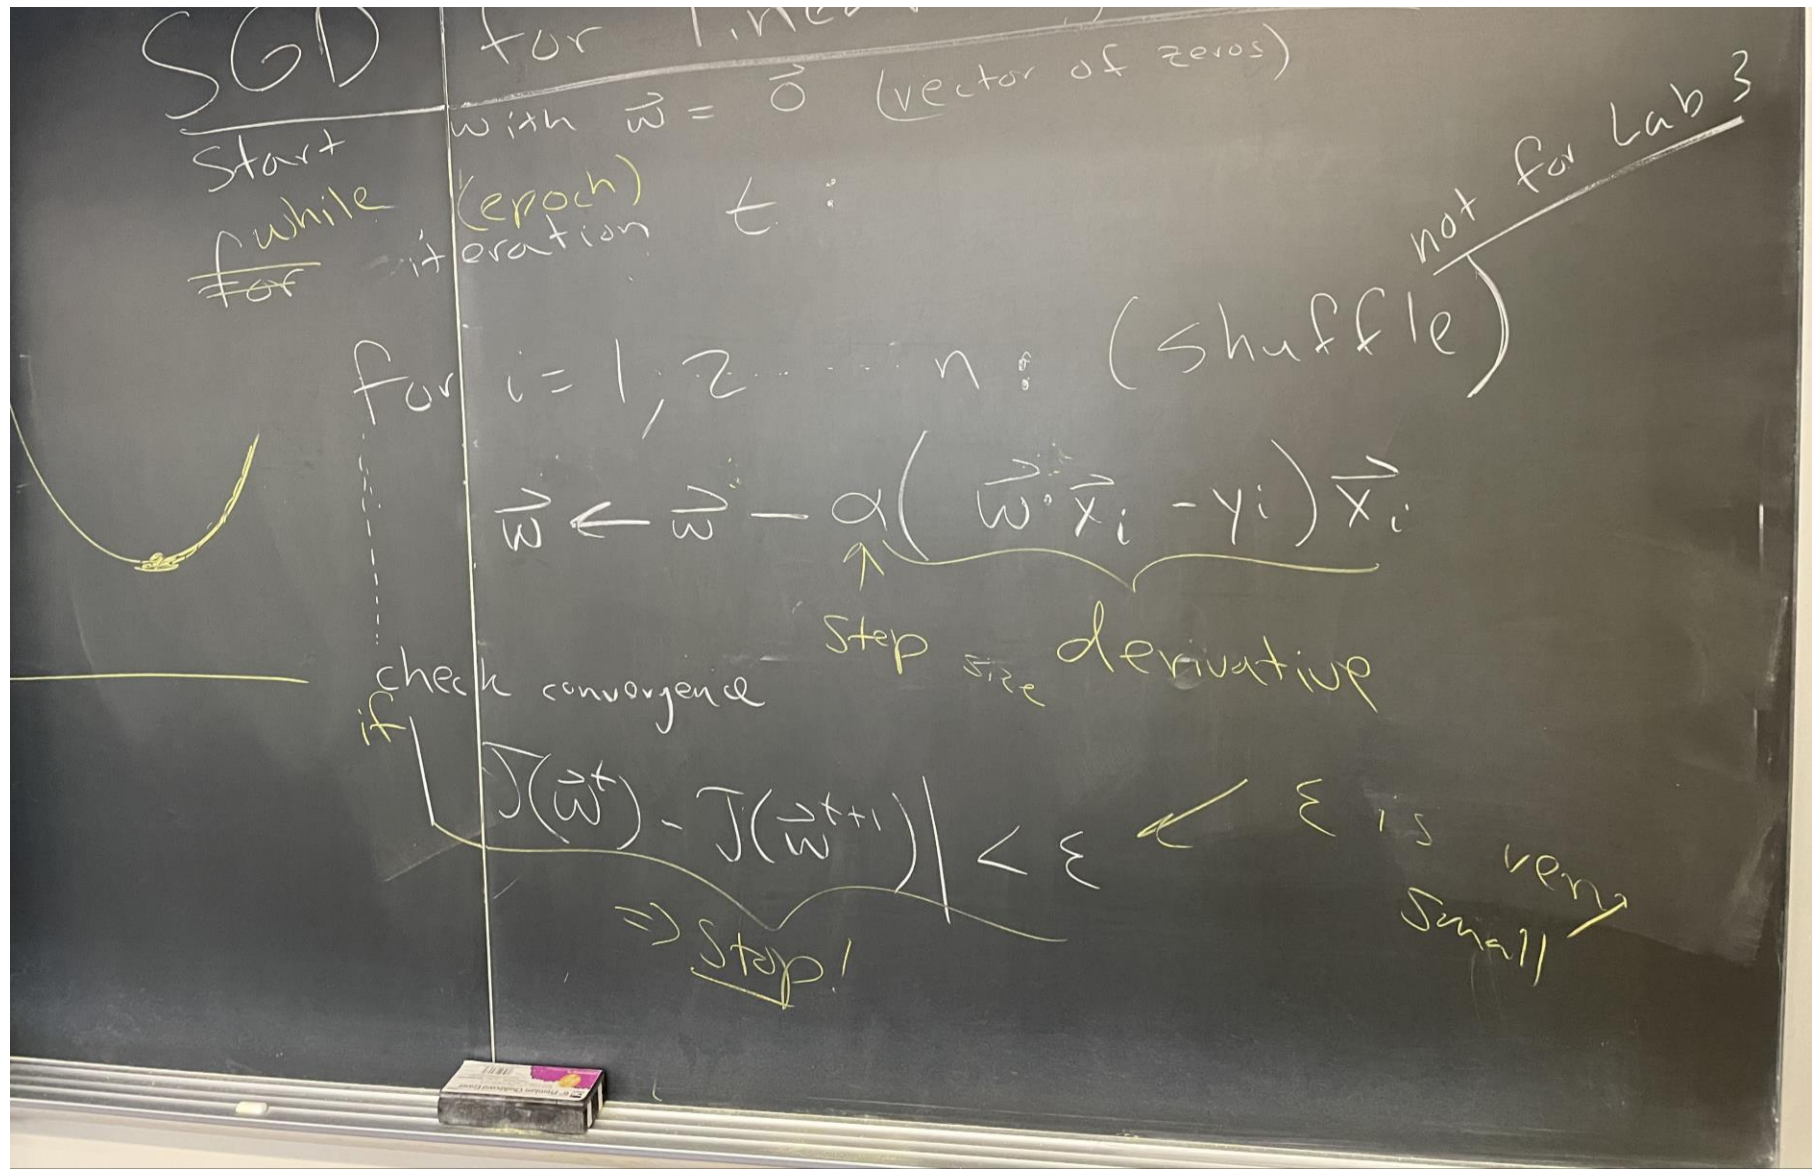 SGD for linea
Start with w⃗ = 0⃗ (vector of zeros)
while (epoch)
for iteration t :
not for Lab 3
for i = 1, 2 ... ... n : (shuffle)
w⃗ ← w⃗ − α( w⃗ · x⃗ᵢ − yᵢ ) x⃗ᵢ
↑
step size derivative
check convergence
if | J(w⃗ᵗ) − J(w⃗ᵗ⁺¹) | < ε ← ε is very
small
⇒ Stop!